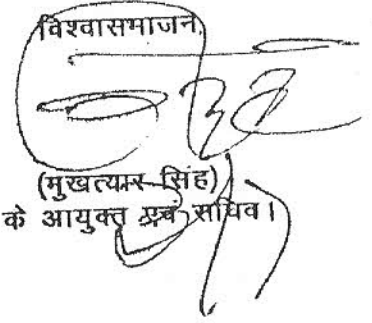 विश्वासभाजन,
(मुखत्यार सिंह)
के आयुक्त एवं सचिव।